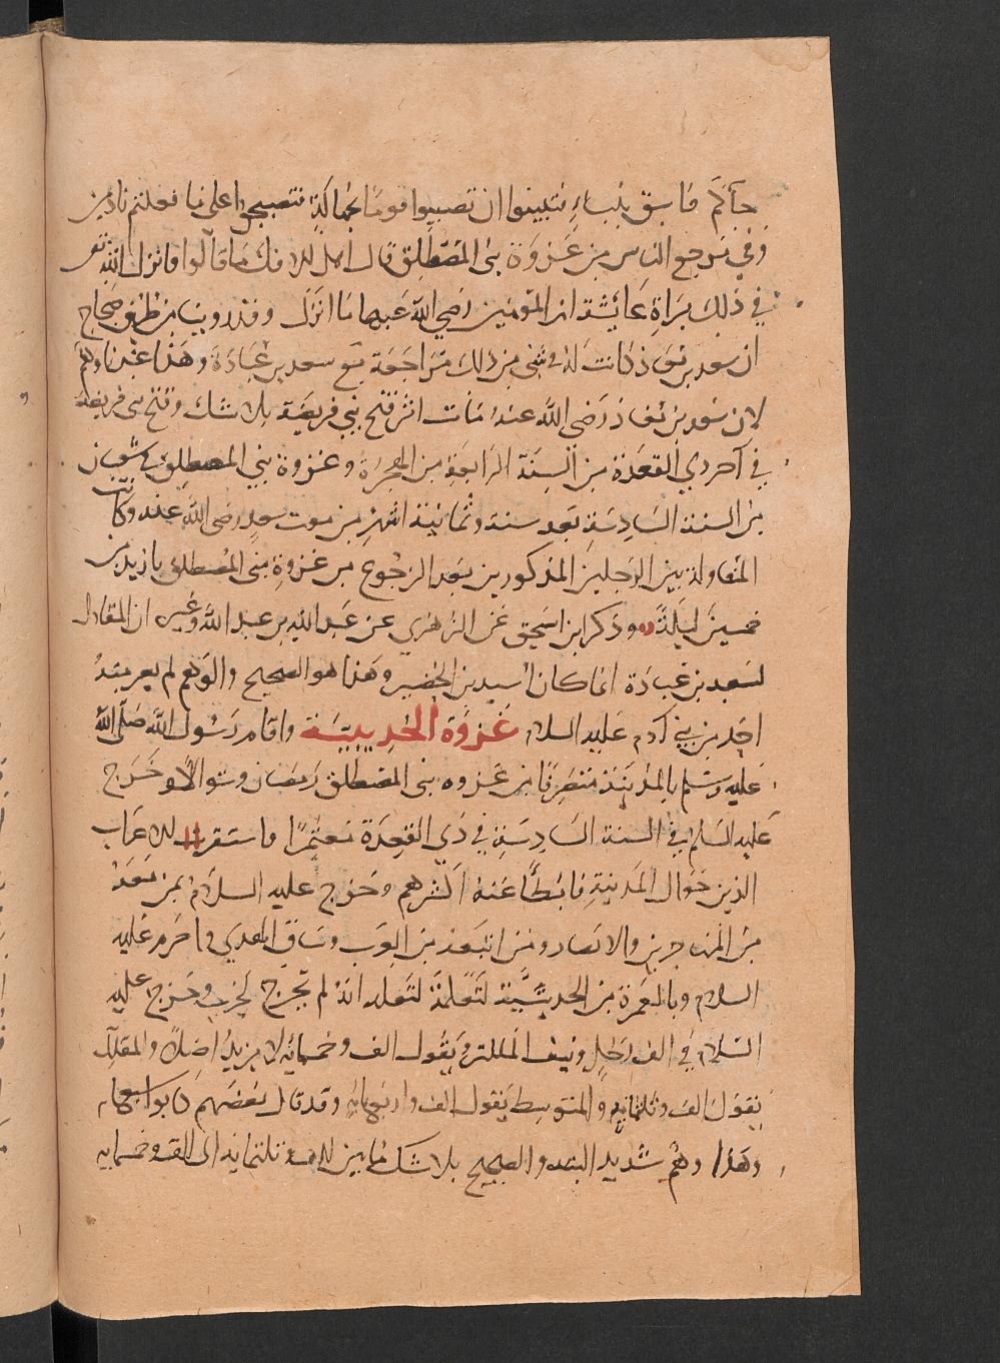 جآكم فاسق بنباءٍ فتبينوا ان تصيبوا قوما بجهالة فتصبحوا على ما فعلتم نادمين
وفي مرجع الناس من غزوة بني المصطلق قال اهل الافك ما قالوا فانزل الله تعـ
في ذلك براة عائشة ام المؤمنين رضي الله عنها ما انزل وقد روينا من طرق صحاح
ان سعد بن معاذ كانت له في شي من ذلك مراجعة مع سعد بن عبادة وهذا عندنا وهم
لان سعد بن معاذ رضي الله عنه مات اثر فتح بني قريضة بلا شك وفتح بني قريضة
في آخر ذي القعدة من السنة الرابعة من الهجرة وغزوة بني المصطلق في شعبان
من السنة السادسة بعد سنة وثمانية اشهر من موت سعد رضي الله عنه وكانت
المقاولة بين الرجلين المذكورين بعد الرجوع من غزوة بني المصطلق بازيد من
خمسين ليلة وذكر ابن اسحق عن الزهري عن عبيد الله بن عبد الله وغيره ان المقاول
لسعد بن عبادة انما كان اسيد بن الحضير وهذا هو الصحيح والوهم لم يعر منه
احد من بني آدم عليه السلام غزوة الحديبية واقام رسول الله صلى الله
عليه وسلم بالمدينة منصرفا من غزوه بني المصطلق رمضان وشوالا وخرج
عليه السلم في السنة السادسة في ذي القعدة معتمرا فاستنفر الاعراب
الذين حوال المدينة فابطأ عنه اكثرهم وخرج عليه السلام بمن معه
من المهاجرين والانصار ومن اتبعه من العرب وساق الهدي واحرم عليه
السلام وبالعمرة من الحديبية لتعلمة لتعلم انه لم يخرج لحرب وخرج عليه
السلام في الف رجل ونيف المكثر يقول الف وخمسمائة لا مزيد اصلا والمقلل
يقول الف وثلثمائة والمتوسط يقول الف واربعمائة وقد قال بعضهم كانوا سبعمائة
وهذا وهم شديد البتة والصحيح بلا شك ما بين الالف وثلثمائة الى الف وخمسمايه